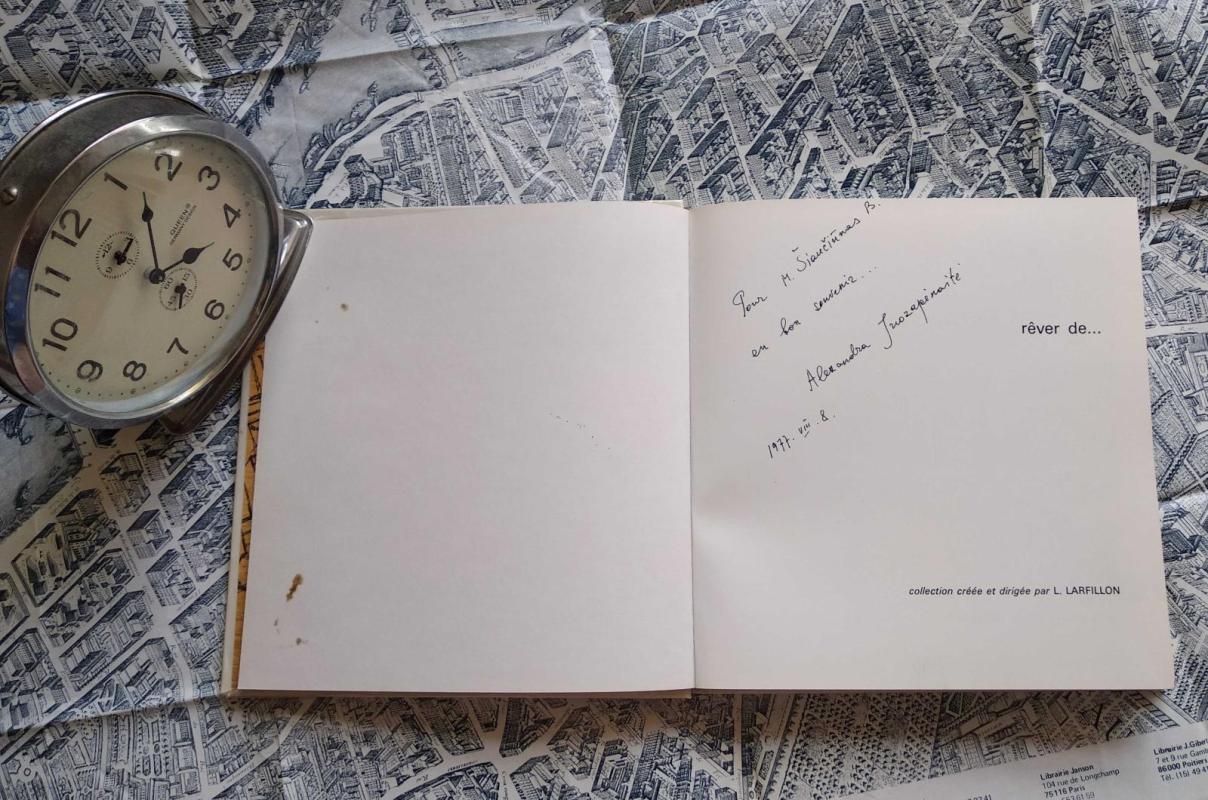 12
1
2
3
4
5
6
7
8
9
10
11
QUEEN-B
Pour M. Šiaučiūnas B.
en bon souvenir...
Alexandra Juozapénaité
1977. VIII. 8.
rêver de...
collection créée et dirigée par L. LARFILLON
Librairie Janson
104 rue de Longchamp
75116 Paris
Librairie J.Gibert
7 et 9 rue
86000 Poitiers
Tél. (15) 49 41